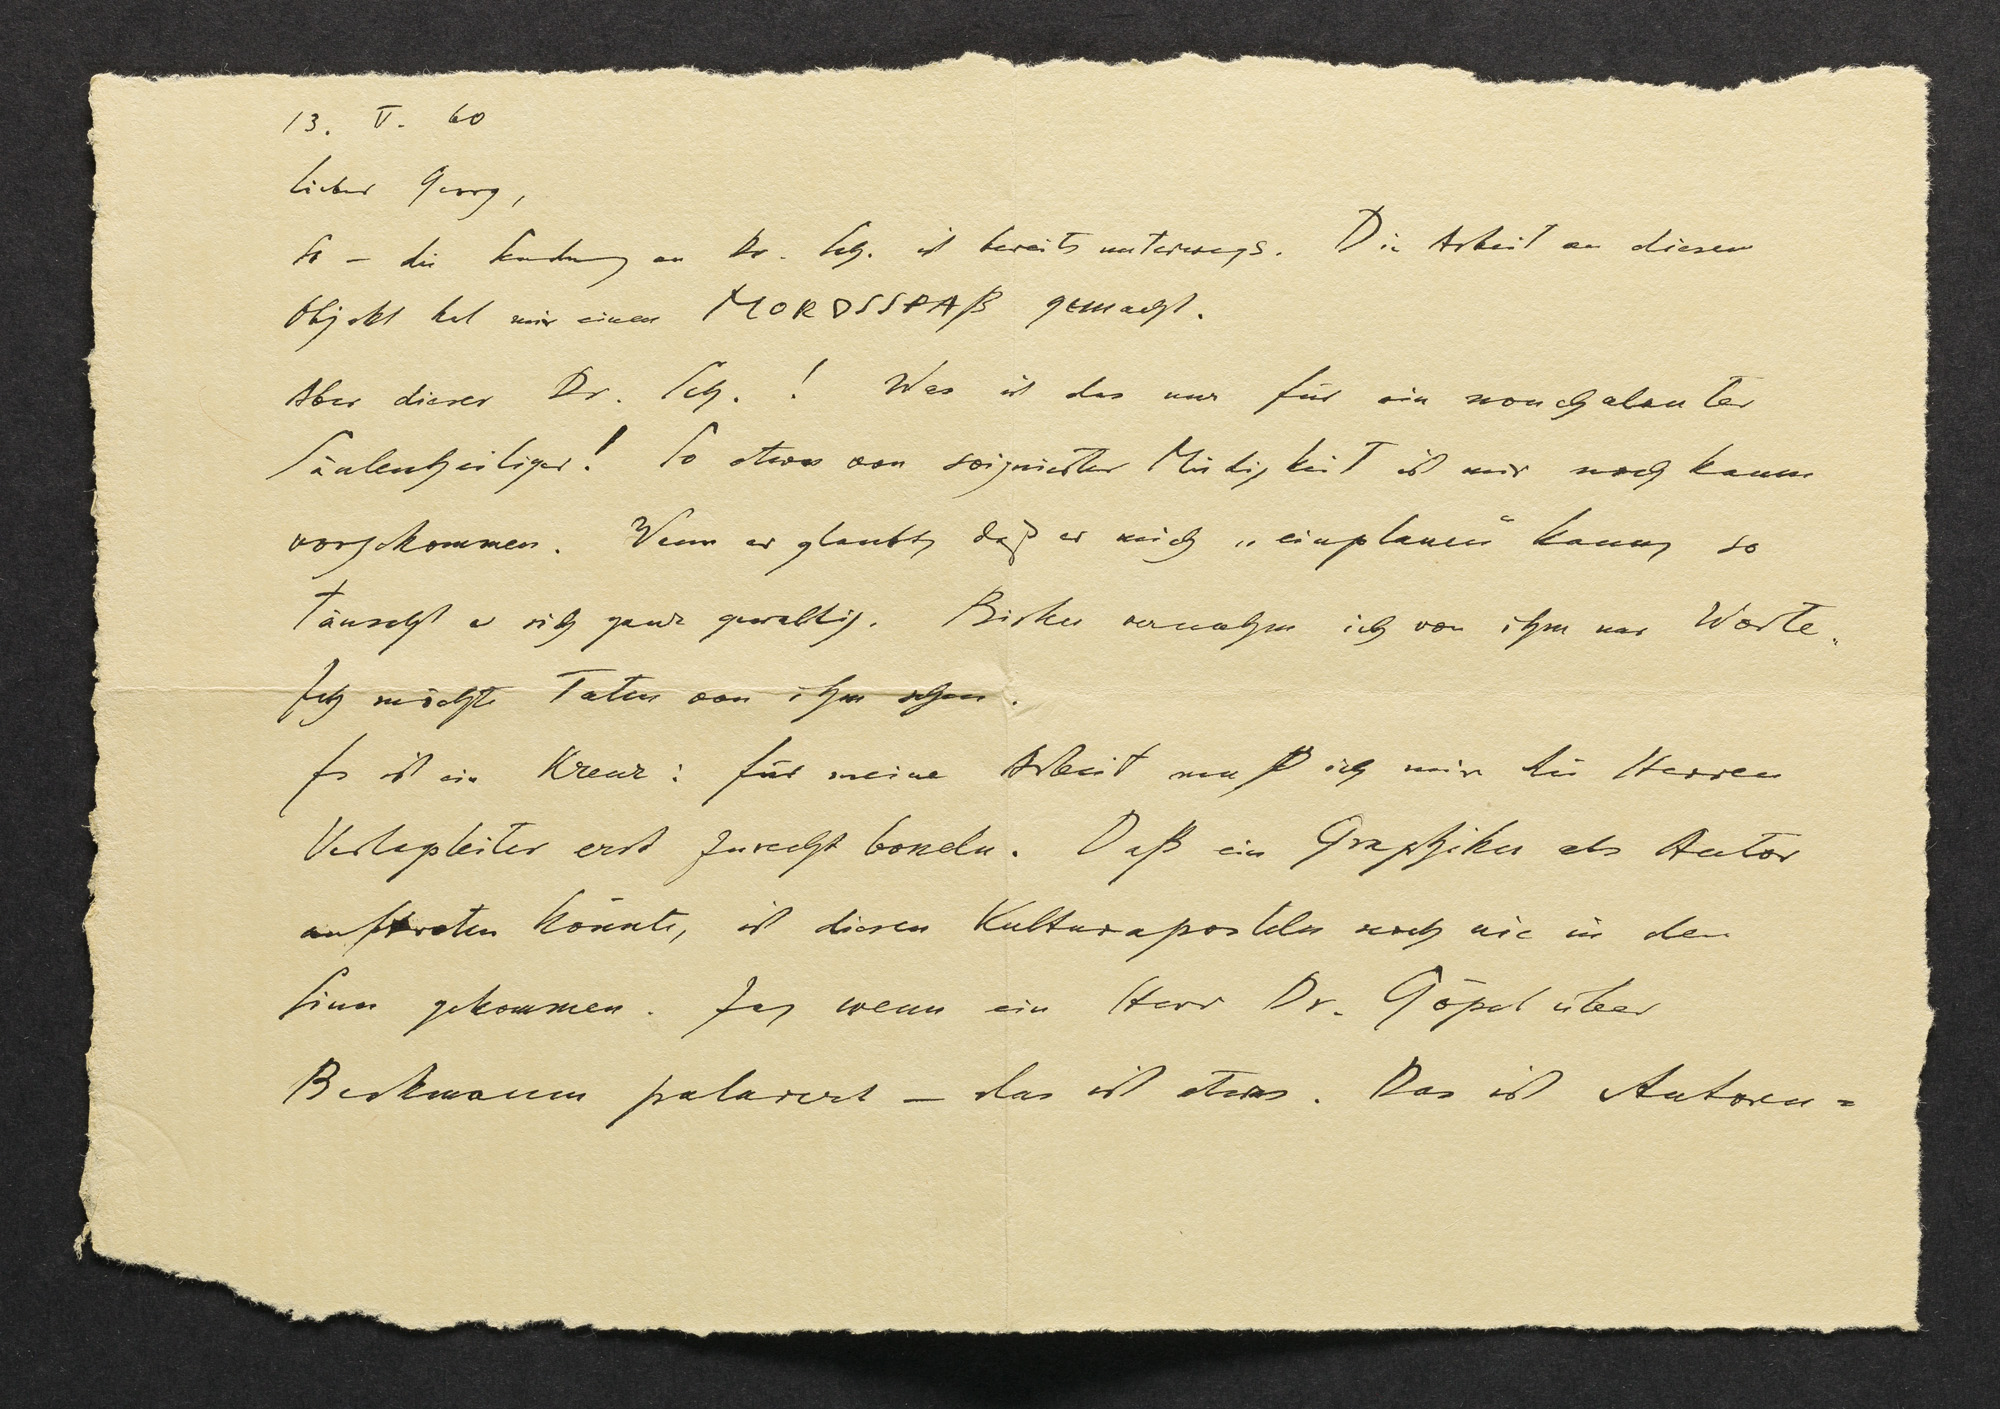 13. V. 60
Lieber Georg,
So – die Sendung an Dr. Sch. ist bereits unterwegs. Die Arbeit an diesem
Objekt hat mir einen MORDSSPAß gemacht.
Aber dieser Dr. Sch.! Was ist das nur für ein nonchalanter
Säulenheiliger! So etwas von soignierter Müdigkeit ist mir noch kaum
vorgekommen. Wenn er glaubt, daß er mich „einplanen“ kann, so
täuscht er sich ganz gewaltig. Bisher vernahm ich von ihm nur Worte.
Ich möchte Taten von ihm sehen.
Es ist ein Kreuz: für meine Arbeit muß ich mir die Herren
Verlagsleiter erst zurecht boxeln. Daß ein Graphiker als Autor
auftreten könnte, ist diesen Kulturaposteln noch nie in den
Sinn gekommen. Ja, wenn ein Herr Dr. Göpel über
Beckmann palavert – das ist etwas. Das ist Autoren=